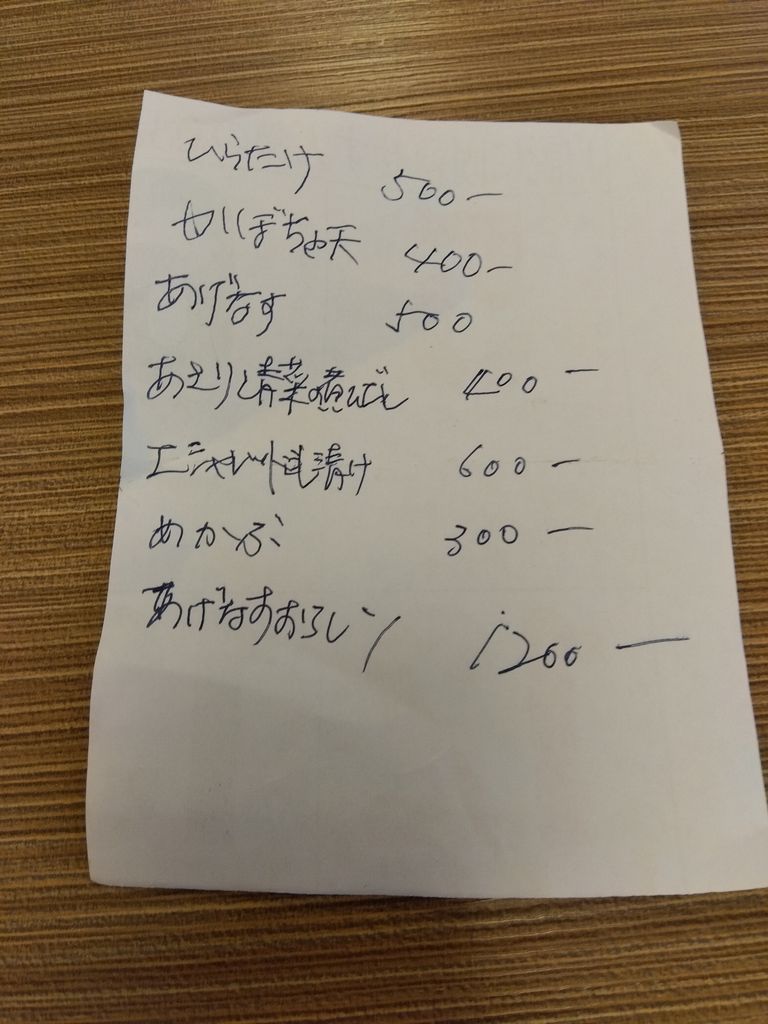 ひらたけ 500-
かぼちゃ天 400-
あげなす 500
あさりと青菜の煮びたし 400-
エシャレット味噌漬け 600-
めかぶ 300-
あげなすおろし 1200-